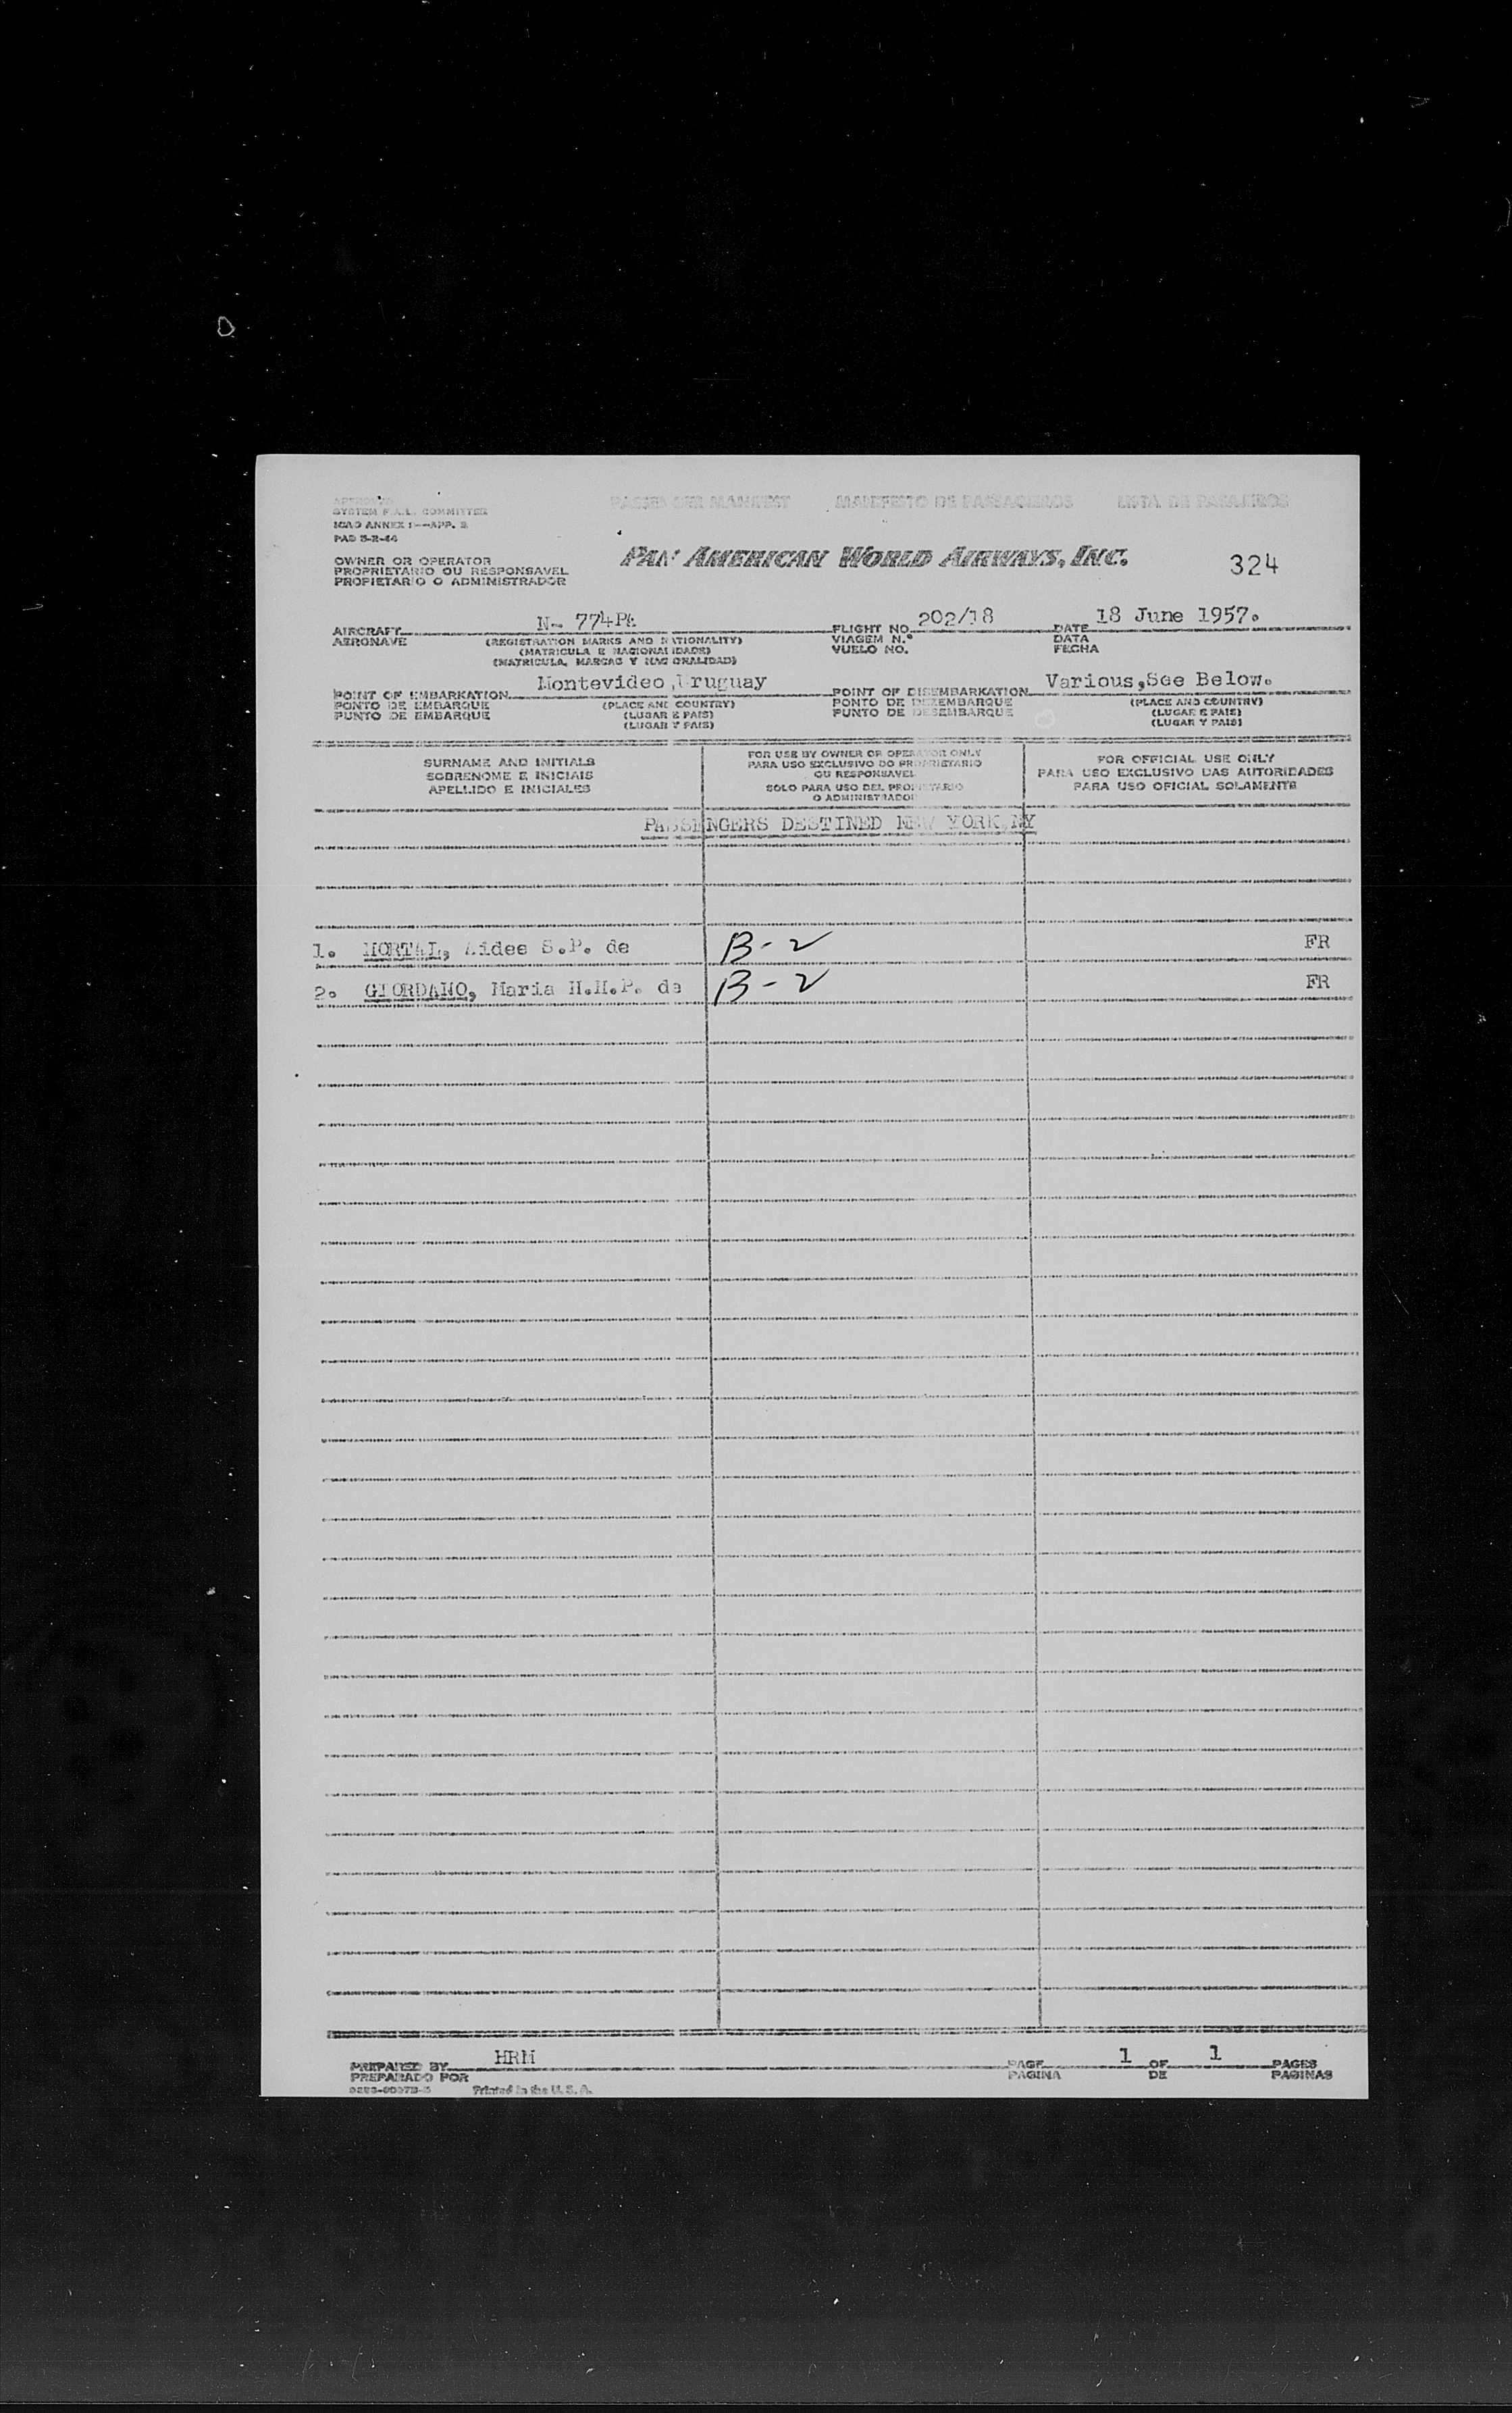 SYSTEM F.A.L. COMMITTEE
ICAO ANNEX
PASSENGER MANIFEST MANIFESTO DE PASSAGEIROS LISTA DE PASAJEROS
OWNER OR OPERATOR
PROPRIETARIO OU RESPONSAVEL
PROPIETARIO O ADMINISTRADOR
PAN AMERICAN WORLD AIRWAYS, INC.
324
AIRCRAFT N- 774PA FLIGHT NO. 202/18 DATE 18 June 1957.
AERONAVE (REGISTRATION MARKS AND NATIONALITY) VIAGEM N.º DATA
(MATRICULA E NACIONALIDADE) VUELO NO. FECHA
(MATRICULA, MARCAS Y NACIONALIDAD)
POINT OF EMBARKATION Montevideo,Uruguay POINT OF DISEMBARKATION Various,See Below.
PONTO DE EMBARQUE (PLACE AND COUNTRY) PONTO DE DEZEMBARQUE (PLACE AND COUNTRY)
PUNTO DE EMBARQUE (LUGAR E PAIS) PUNTO DE DESEMBARQUE (LUGAR E PAIS)
(LUGAR Y PAIS) (LUGAR Y PAIS)
SURNAME AND INITIALS
SOBRENOME E INICIAIS
APELLIDO E INICIALES
FOR USE BY OWNER OR OPERATOR ONLY
PARA USO EXCLUSIVO DO PROPRIETARIO
OU RESPONSAVEL
SOLO PARA USO DEL PROPIETARIO
O ADMINISTRADOR
FOR OFFICIAL USE ONLY
PARA USO EXCLUSIVO DAS AUTORIDADES
PARA USO OFICIAL SOLAMENTE
PASSENGERS DESTINED NEW YORK,NY
1. MORTAL, Aidee S.P. de B-2 FR
2. GIORDANO, Maria H.H.P. de B-2 FR
PREPARED BY HRM PAGE 1 OF 1 PAGES
PREPARADO POR PAGINA DE PAGINAS
Printed in the U. S. A.